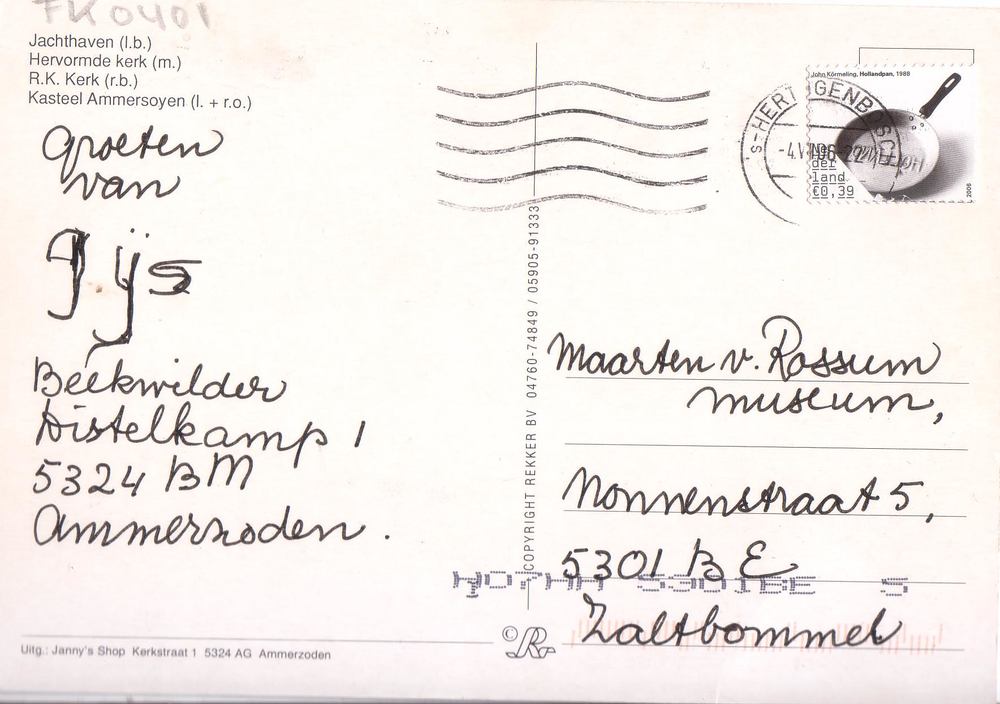 FK0401
Jachthaven (l.b.)
Hervormde kerk (m.)
R.K. Kerk (r.b.)
Kasteel Ammersoyen (l. + r.o.)
Groeten
van
Gijs
Beekwilder
Distelkamp 1
5324 BM
Ammerzoden.
Uitg.: Janny's Shop Kerkstraat 1 5324 AG Ammerzoden
COPYRIGHT REKKER BV 04760-74849 / 05905-91333
© R
John Körmeling, Hollandpan, 1988
Ne
der
land
€0,39
2006
's-HERTOGENBOSCH
Maarten v. Rossum
museum,
Nonnenstraat 5,
5301 BE
5301BE 5
Zaltbommel